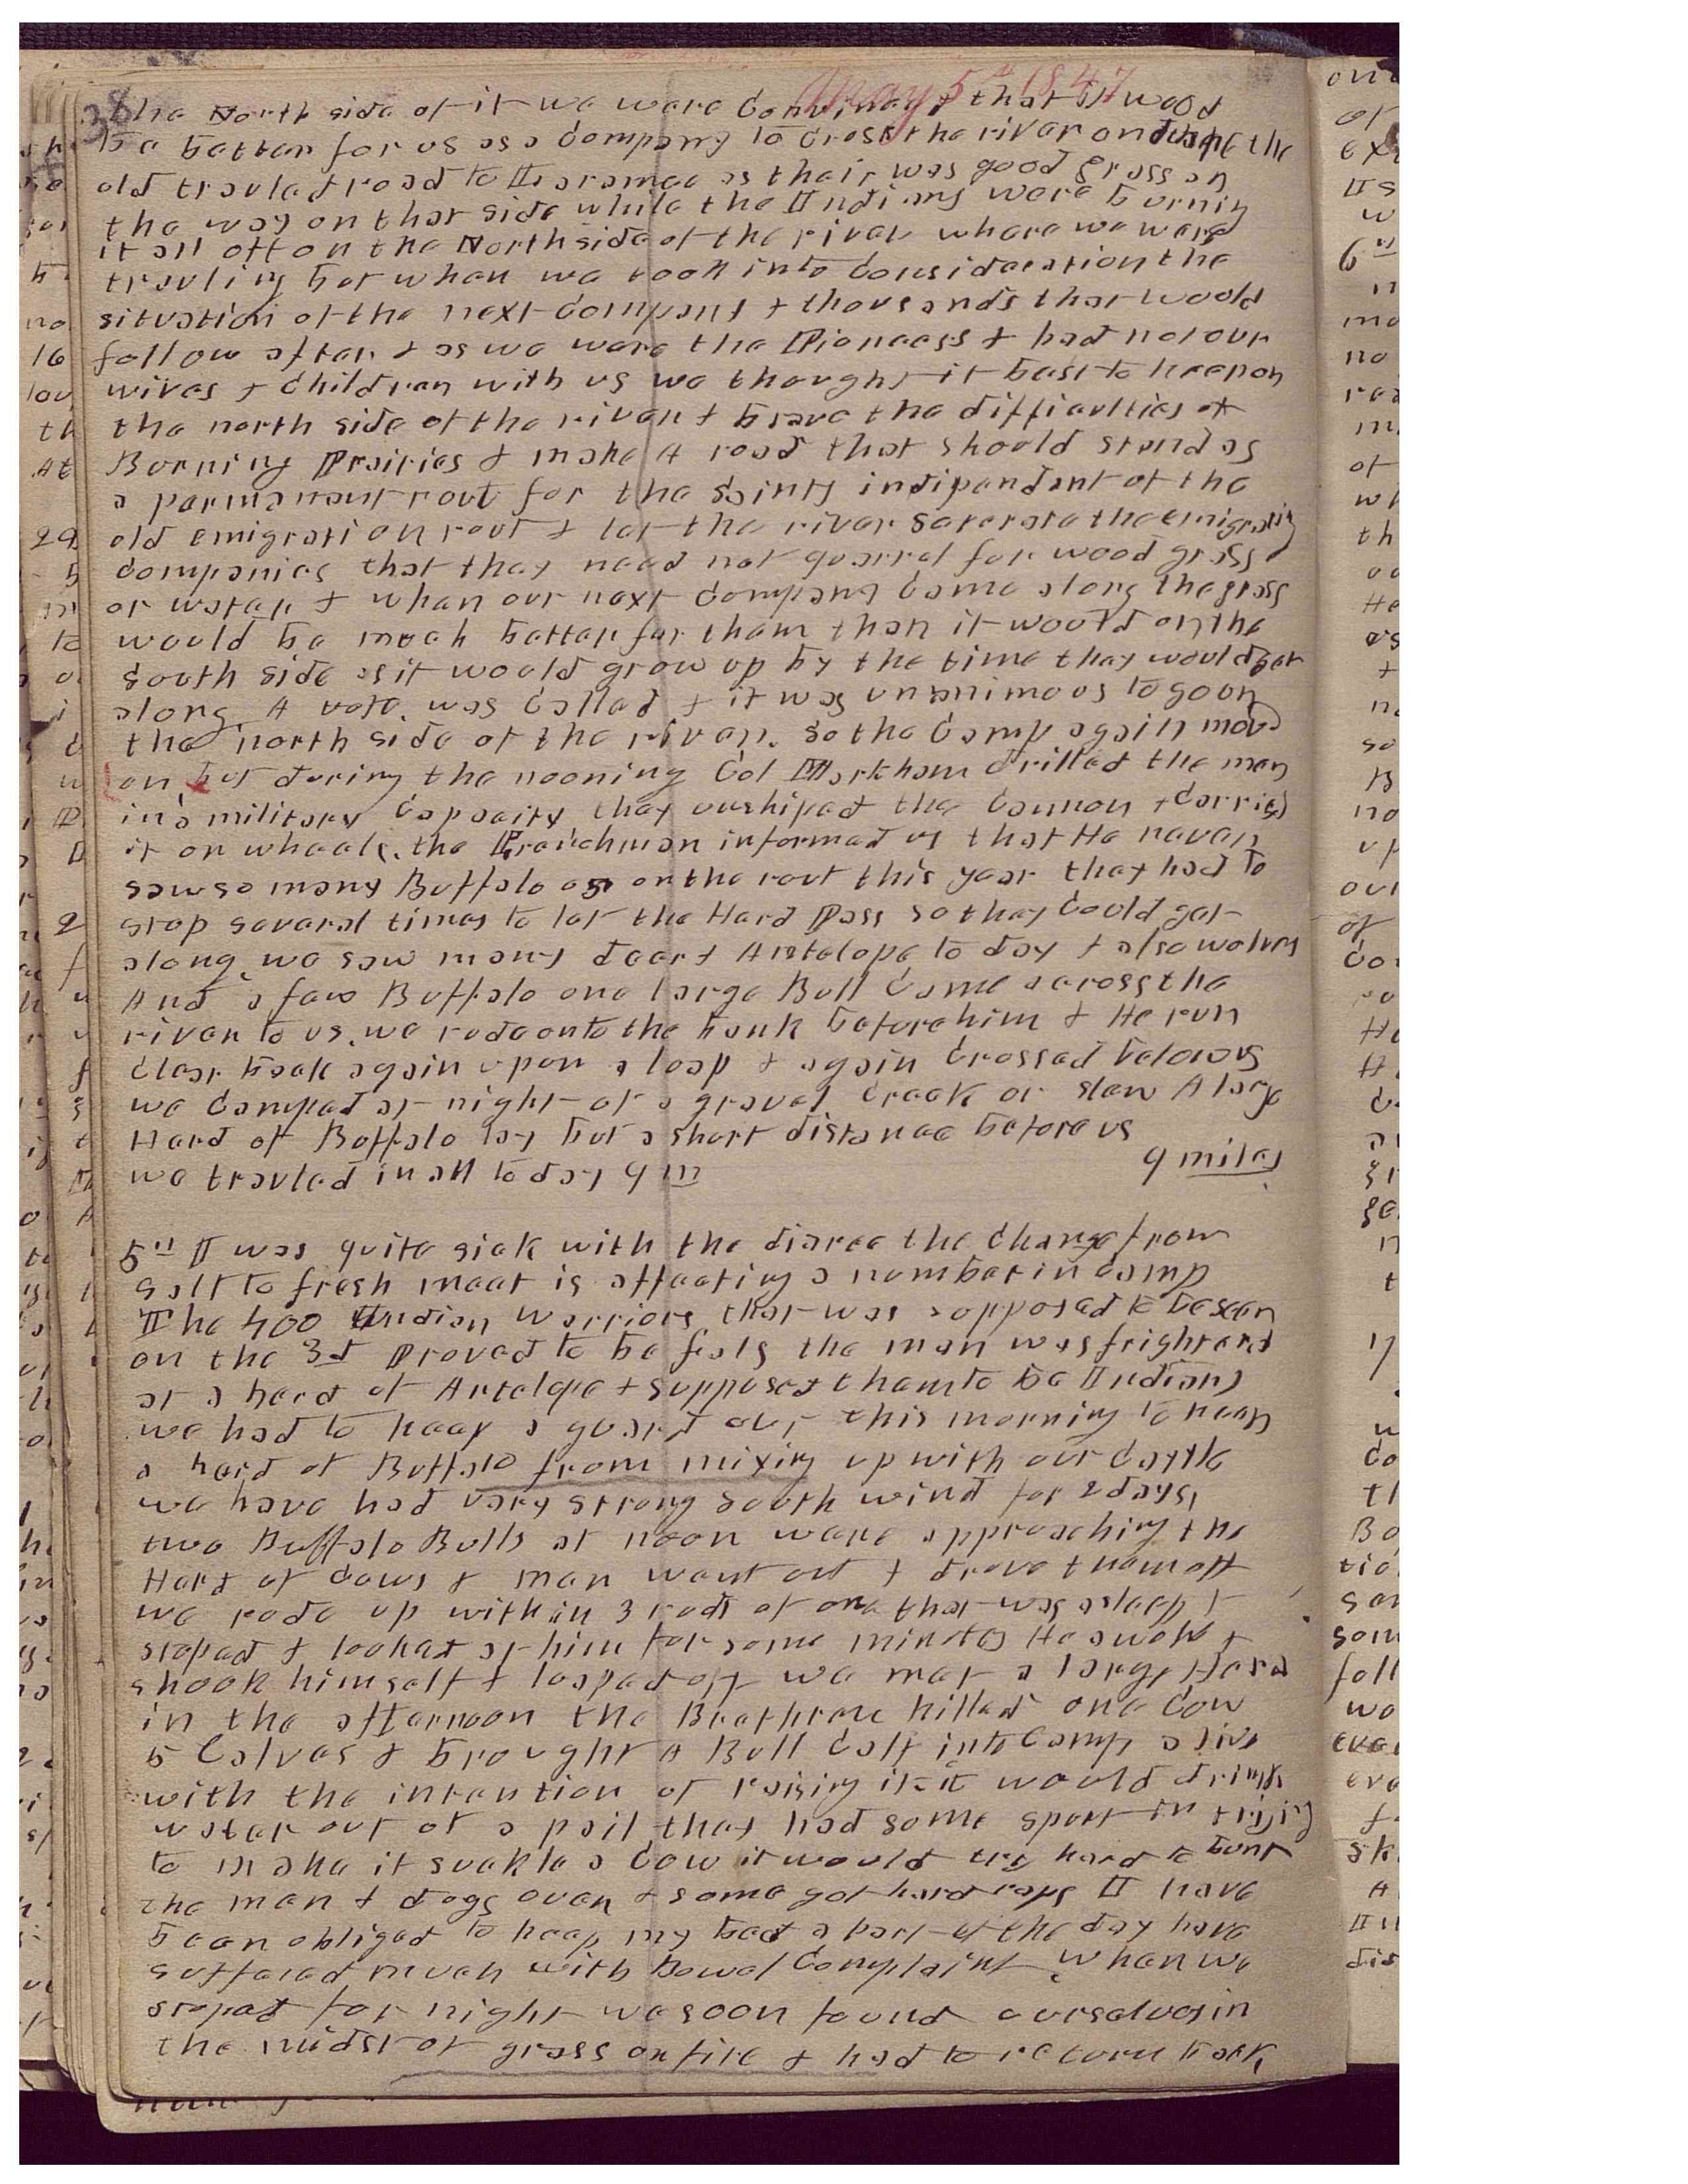 38
May 5th 1847
the North side of it we were convinced that it wood
be better for us as a company to cross the river on the
old travled road to Laramee as their was good grass on
the way on that side while the Indians were burnin
it all off on the North side of the river where we were
travling but when we took into consideration the
situation of the next company & thousands that would
follow after & as we were the Pioneers & had not our
wives & children with us we thought it best to keep on
the north side of the river & brave the difficulties of
Burning Prairies & make A road that should stand as
a permanant rout for the saints indipendant of the
old emigration rout & let the river seperate the emigrating
companies that they need not quarrel for wood grass
or water & when our next company came along the grass
would be much better for them than it would on the
South side as it would grow up by the time they would get
along. A vote was called & it was unanimous to go on
the north side of the river. so the camp again moved
on but during the nooning Col Markham drilled the men
in a military capacity they unshiped the cannon & carries
it on wheels. the Frenchman informed us that He never
saw so many Buffalo as on the rout this year they had to
stop several times to let the Hard Pass so they could get
along we saw many deer & Antelope to day & also wolves
And a few Buffalo one large Bull came across the
river to us. we rode onto the bank before him & He run
clear back again upon a loap & again crossed below us
we camped at night at a gravel creek or slew A large
Hard of Buffalo lay but a short distance before us
we travled in all to day 9 m 9 miles
5th I was quite sick with the diaree the change from
salt to fresh meat is affecting a number in camp
The 400 Indian warriors that was supposed to be seen
on the 3d proved to be fals the man was frightend
at a heard of Antelope & supposed them to be Indians
we had to keep a guard out this morning to keep
a heard of Buffalo from mixing up with our cattle
we have had vary strong South wind for 2 days,
two Buffalo Bulls at noon ware approaching the
Hard of cows & man went out & drove them off
we rode up within 3 rods of one that was asleep &
stoped & looked at him for some minutes He awoke &
shook himself & loaped off we met a large Hard
in the afternoon the Breathren killed one cow
5 Calves & brought A Bull Calf into Camp alive
with the intention of raising it it would drink
water out of a pail they had some sport in trijing
to make it suck a cow it would try hard to bunt
the men & dogs over & some got hard raps I have
been obliged to keep my bed a part of the day have
suffered much with Bowel Complaint when we
stopet for night we soon found ourselves in
the midst of grass on fire & had to return back